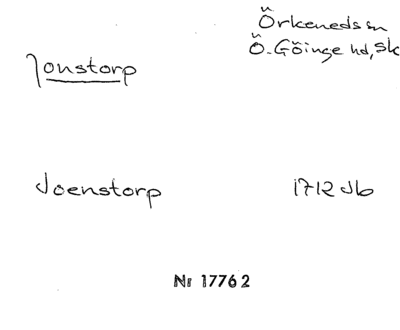 Örkeneds sn
Jonstorp
Ö. Göinge hd, Sk
Joenstorp 1712 Jb
Nr 17762